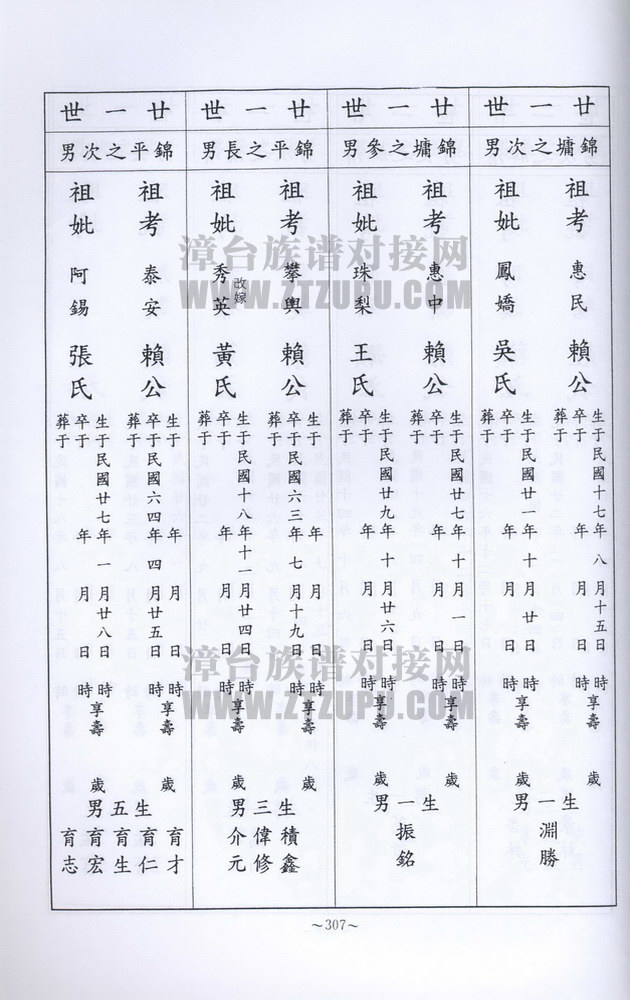 廿一世
錦墉之次男
祖考 惠民 賴公
生于民國十七年八月十五日 時
卒于 年 月 日 時享壽 歲
葬于
祖妣 鳳嬌 吳氏
生于民國廿一年十月廿日 時
卒于 年 月 日 時享壽 歲
葬于
生一男
淵勝
廿一世
錦墉之參男
祖考 惠中 賴公
生于民國廿七年十月一日 時
卒于 年 月 日 時享壽 歲
葬于
祖妣 珠梨 王氏
生于民國廿九年十月廿六日 時
卒于 年 月 日 時享壽 歲
葬于
生一男
振銘
廿一世
錦平之長男
祖考 攀輿 賴公
生于 年 月 日 時
卒于民國六三年七月十九日 時享壽 歲
葬于
改嫁
祖妣 秀英 黃氏
生于民國十八年十一月廿四日 時
卒于 年 月 日 時享壽 歲
葬于
生三男
積鑫
偉修
介元
廿一世
錦平之次男
祖考 泰安 賴公
生于 年 月 日 時
卒于民國六四年四月廿五日 時享壽 歲
葬于
祖妣 阿錫 張氏
生于民國廿七年一月廿八日 時
卒于 年 月 日 時享壽 歲
葬于
生五男
育才
育仁
育生
育宏
育志
~307~
漳台族谱对接网
WWW.ZTZUPU.COM
漳台族谱对接网
WWW.ZTZUPU.COM